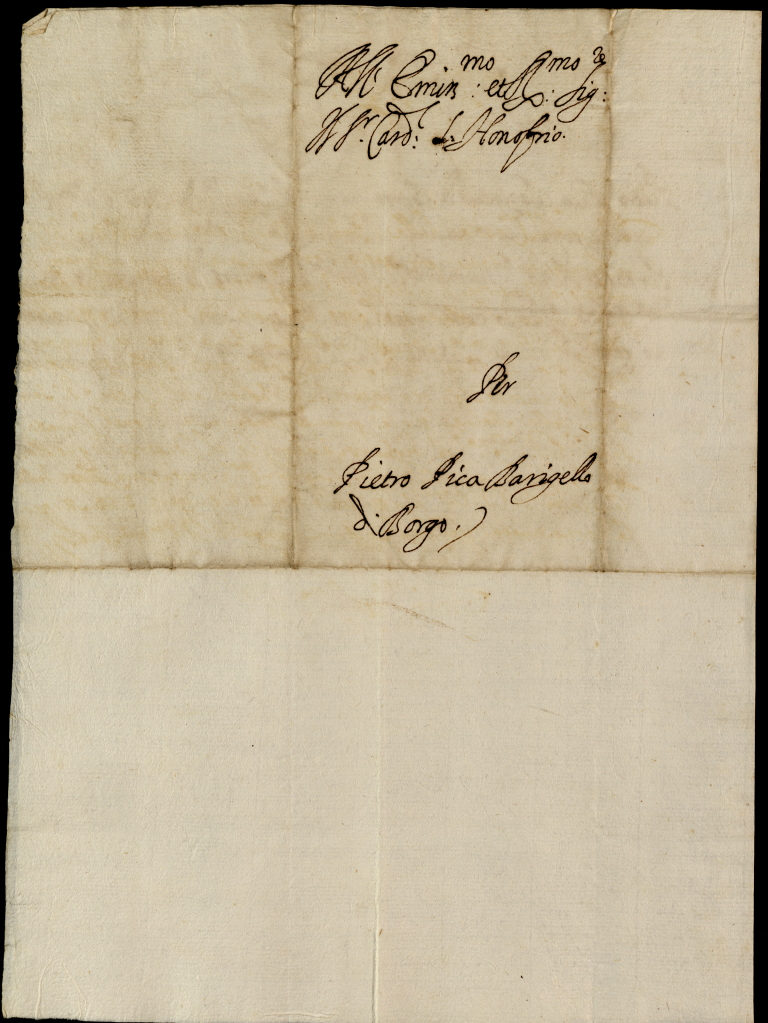 All' Emin:mo et R:mo Sig:re
Il Sr. Card:l S. Honofrio.
Per
Pietro Pica Barigello
di Borgo.